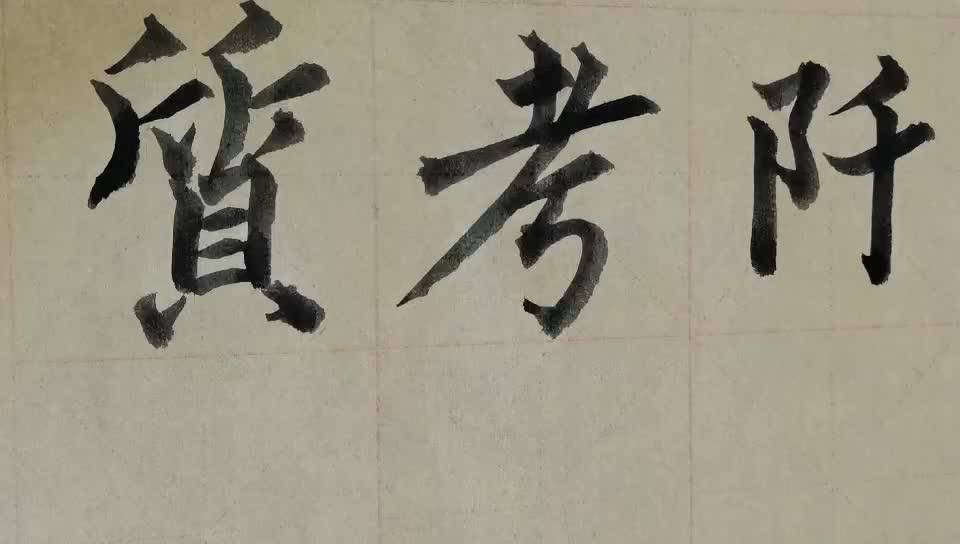 質考阡